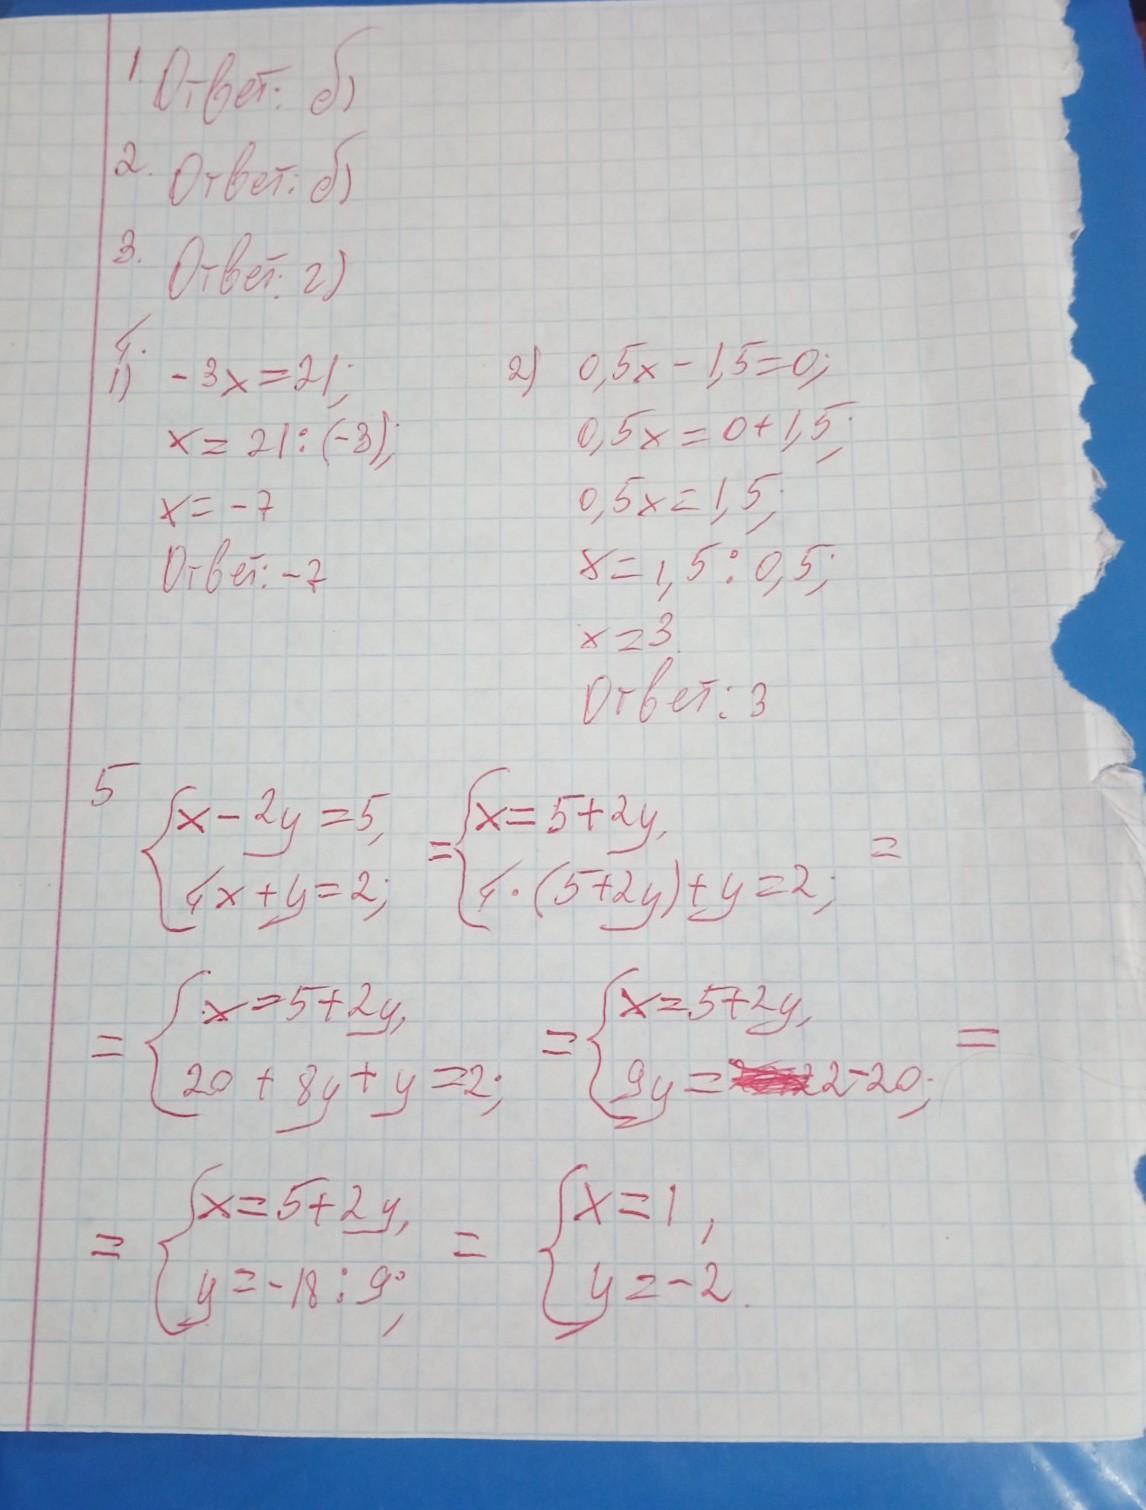 1. Ответ: б)
2. Ответ: б)
3. Ответ: г)
4.
1) -3x=21;
x=21:(-3);
x=-7
Ответ: -7
2) 0,5x-1,5=0;
0,5x=0+1,5;
0,5x=1,5;
x=1,5:0,5;
x=3
Ответ: 3
5 {x-2y=5, = {x=5+2y, =
4x+y=2; 4·(5+2y)+y=2;
= {x=5+2y, = {x=5+2y, =
20+8y+y=2; 9y=2-20;
= {x=5+2y, = {x=1,
y=-18:9; y=-2.